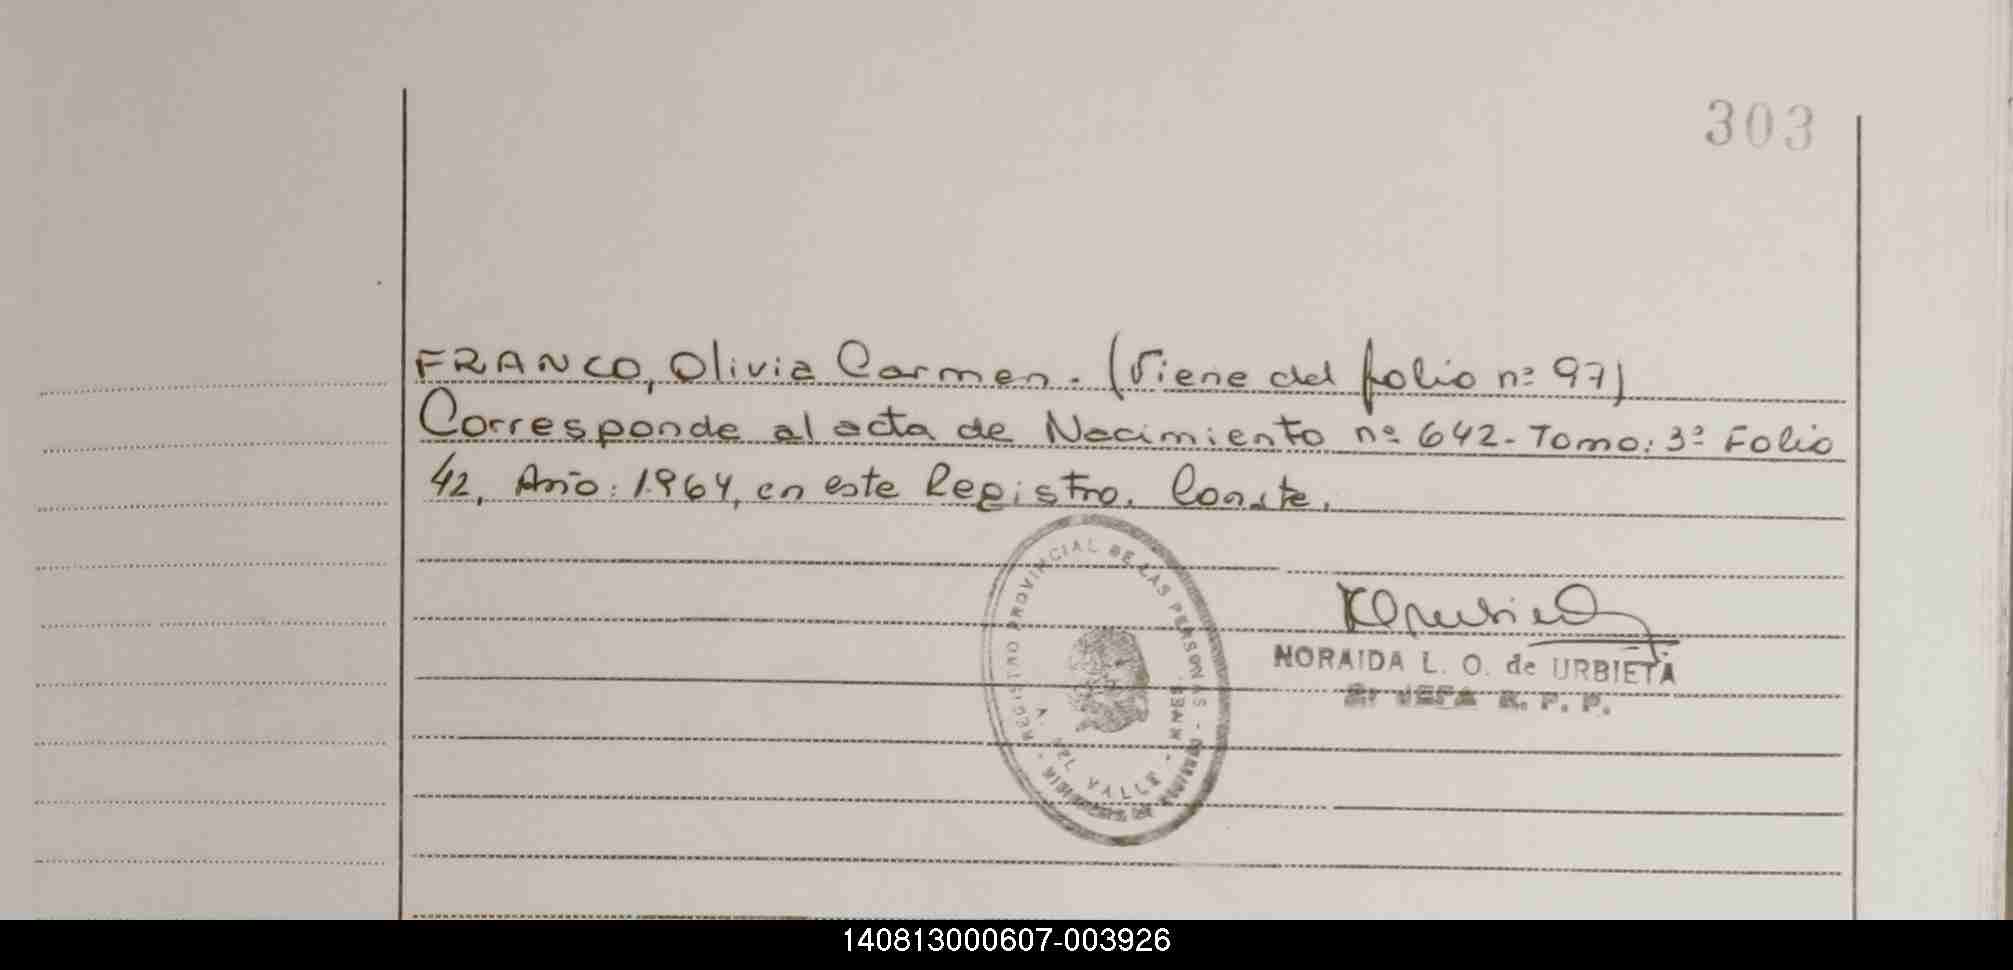 303
FRANCO, Olivia Carmen. (Viene del folio nº 97)
Corresponde al acta de Nacimiento nº 642- Tomo: 3º Folio
42, Año: 1.964, en este Registro. Conste.
REGISTRO PROVINCIAL DE LAS PERSONAS -
VALLE
NORAIDA L. O. de URBIETA
JEFA R. P. P.
140813000607-003926